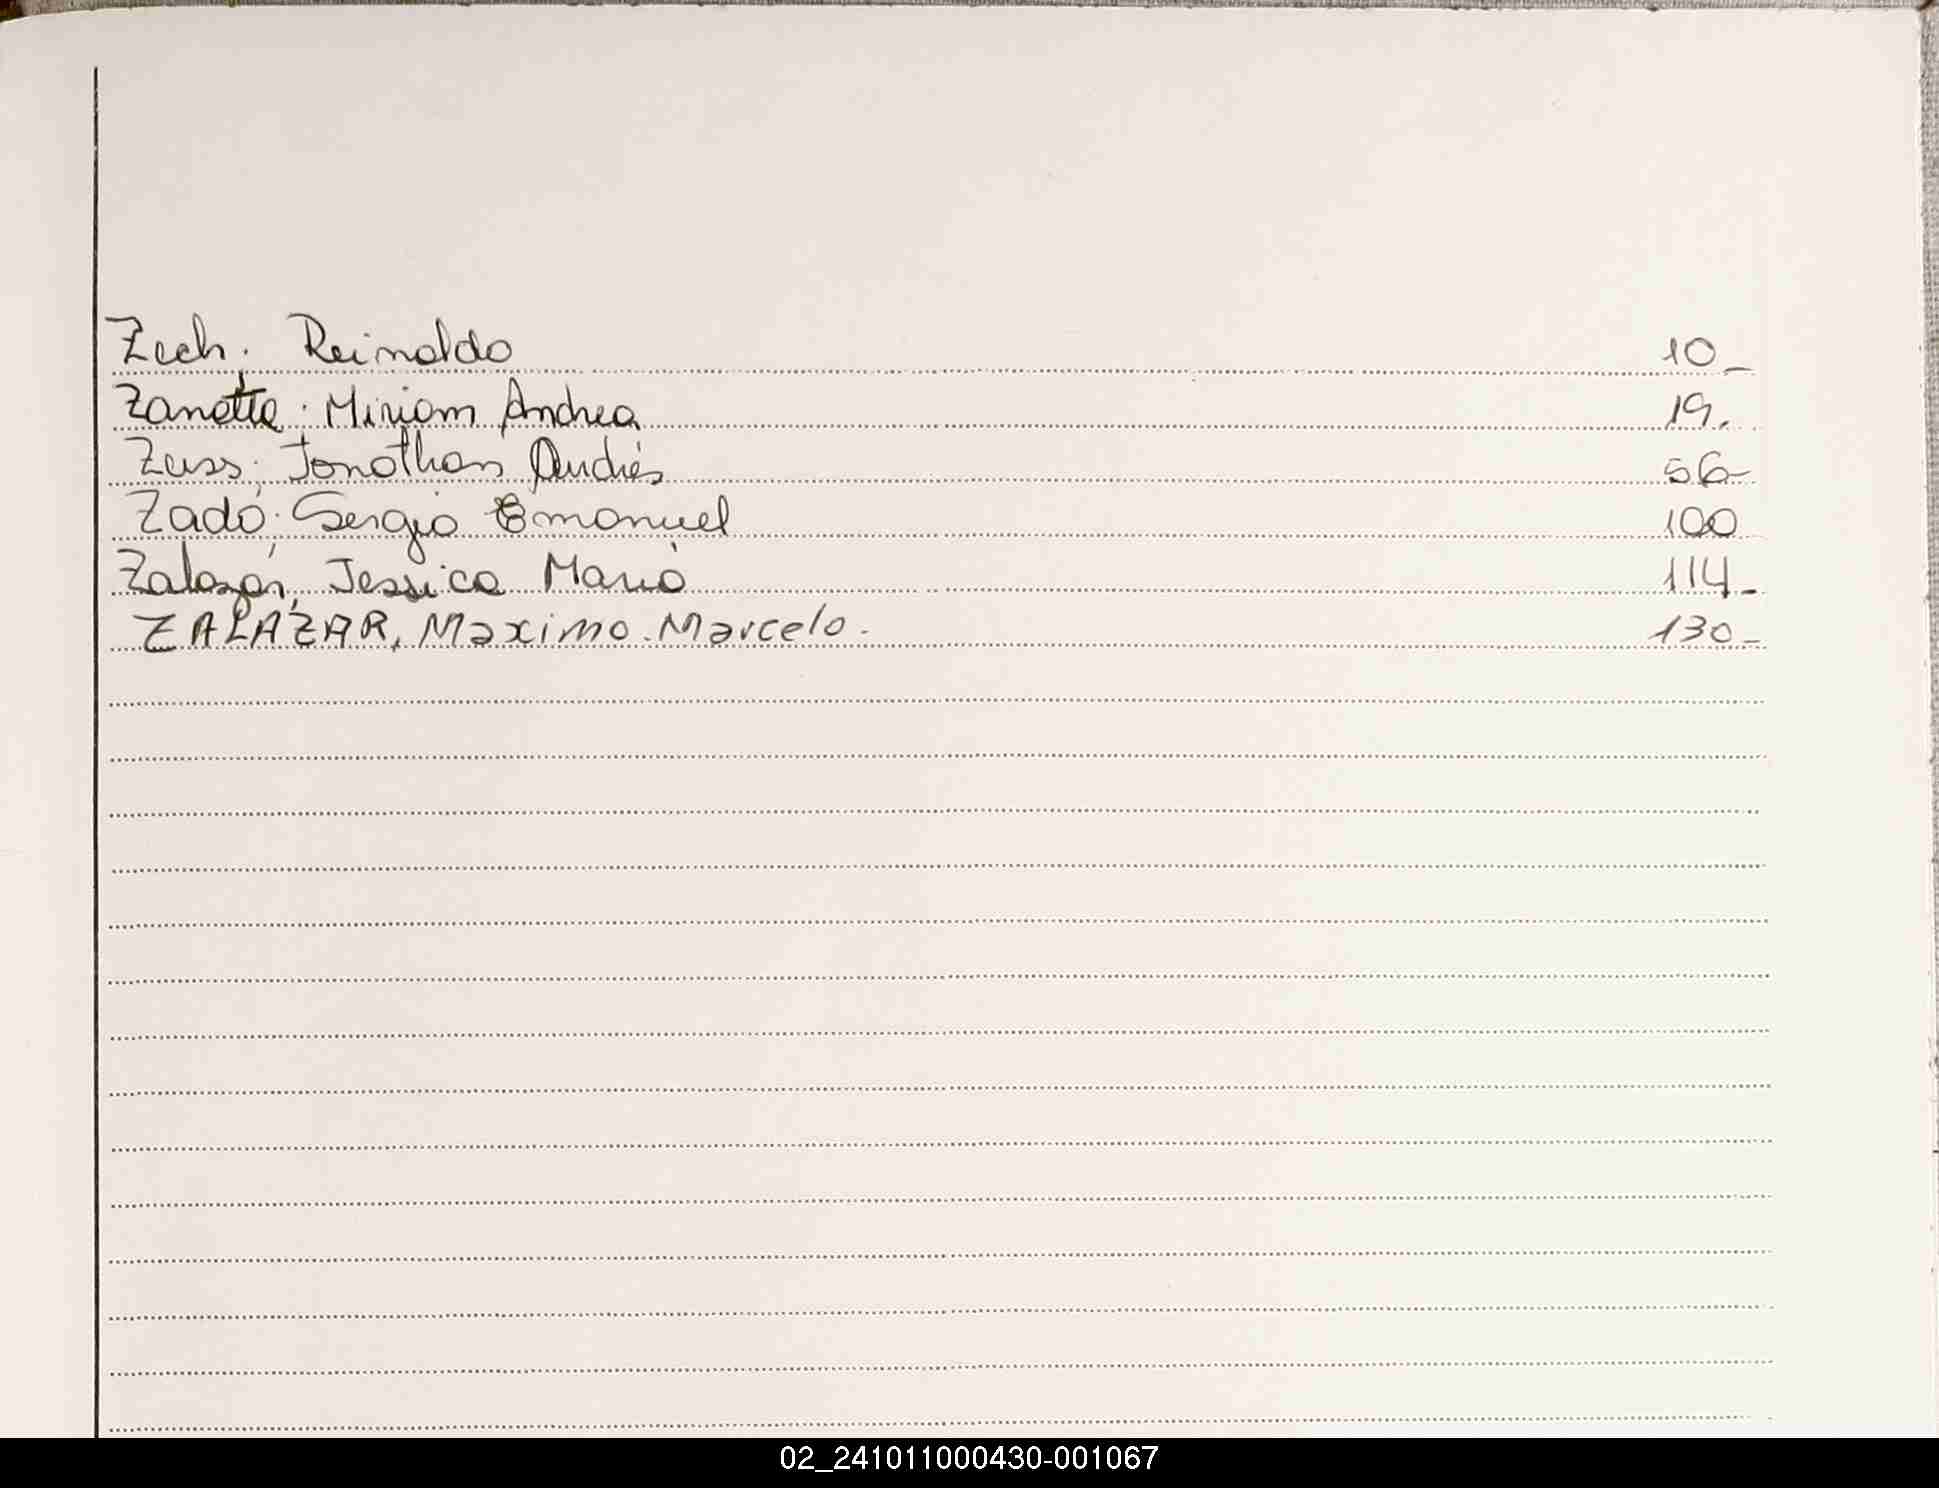 Zech. Reinaldo 10_
Zanette. Miriam Andrea 19.
Zuss; Jonathan Andrés 56-
Zadó; Sergio Emanuel 100
Zalazar, Jessica María 114-
ZALAZAR, Maximo. Marcelo. 130-
02_241011000430-001067